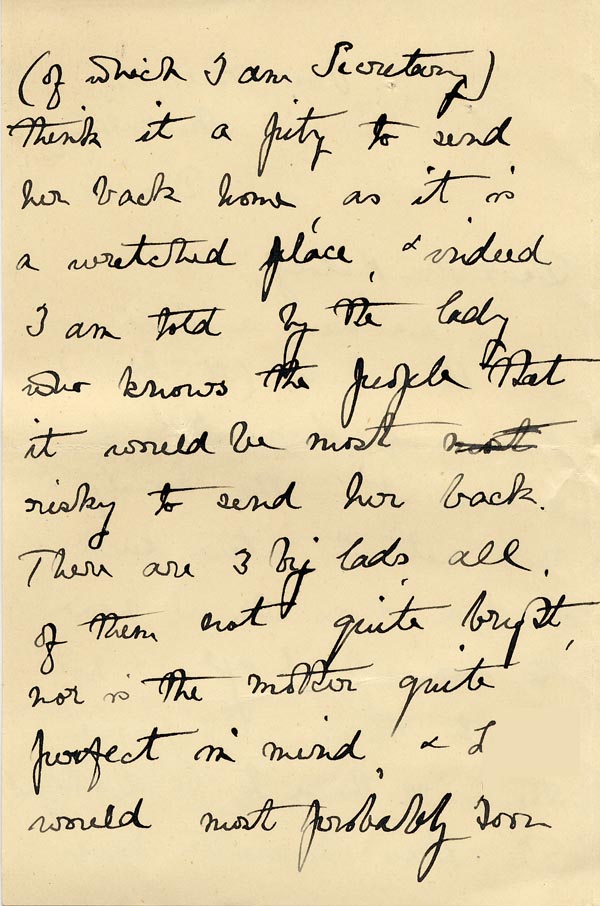 (of which I am Secretary)
think it a pity to send
her back home, as it is
a wretched place, & indeed
I am told by the lady
who knows the people that
it would be most most
risky to send her back.
There are 3 big lads, all
of them not quite bright,
nor is the mother quite
perfect in mind, & L
would most probably soon